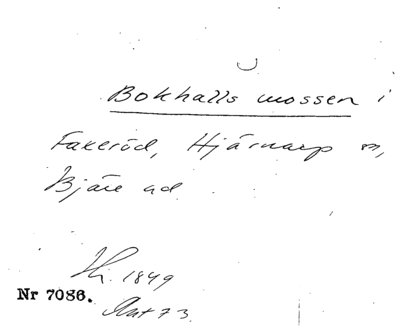 Bokhalls mossen i
Faxeröd, Hjärnarp sn,
Bjäre hd
Hi. 1849
Nr 7086.
Ant 73.